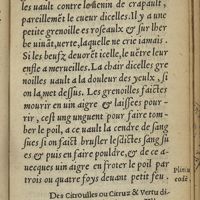 les uault contre lo uenin de crapault, &
pareillemẽt le cueur dicelles. Il y a une
petite grenoille es roseaulx & sur lher
be uiuãt, uerte, laquelle ne crie iamais.
Si les beufz deuorẽt icelle, le uẽtre leur
enfle a merueilles. La chair dicelles gre
noilles uault a la douleur des yeulx, si
on la met dessus. Les grenoilles faictes
mourir en uin aigre & laissees pour-
rir, cest ung unguent pour faire tom
ber le poil, a ce uault la cendre de sang
sues si on faict brusler lesdictes sang su
es & puis en faire pouldre, & de ce a-
uecques uin aigre en froter le poil par
trois ou quatre foys deuant petit feu.
Des Citroulles ou Citruz & Vertu di-
Pliniu
codē.